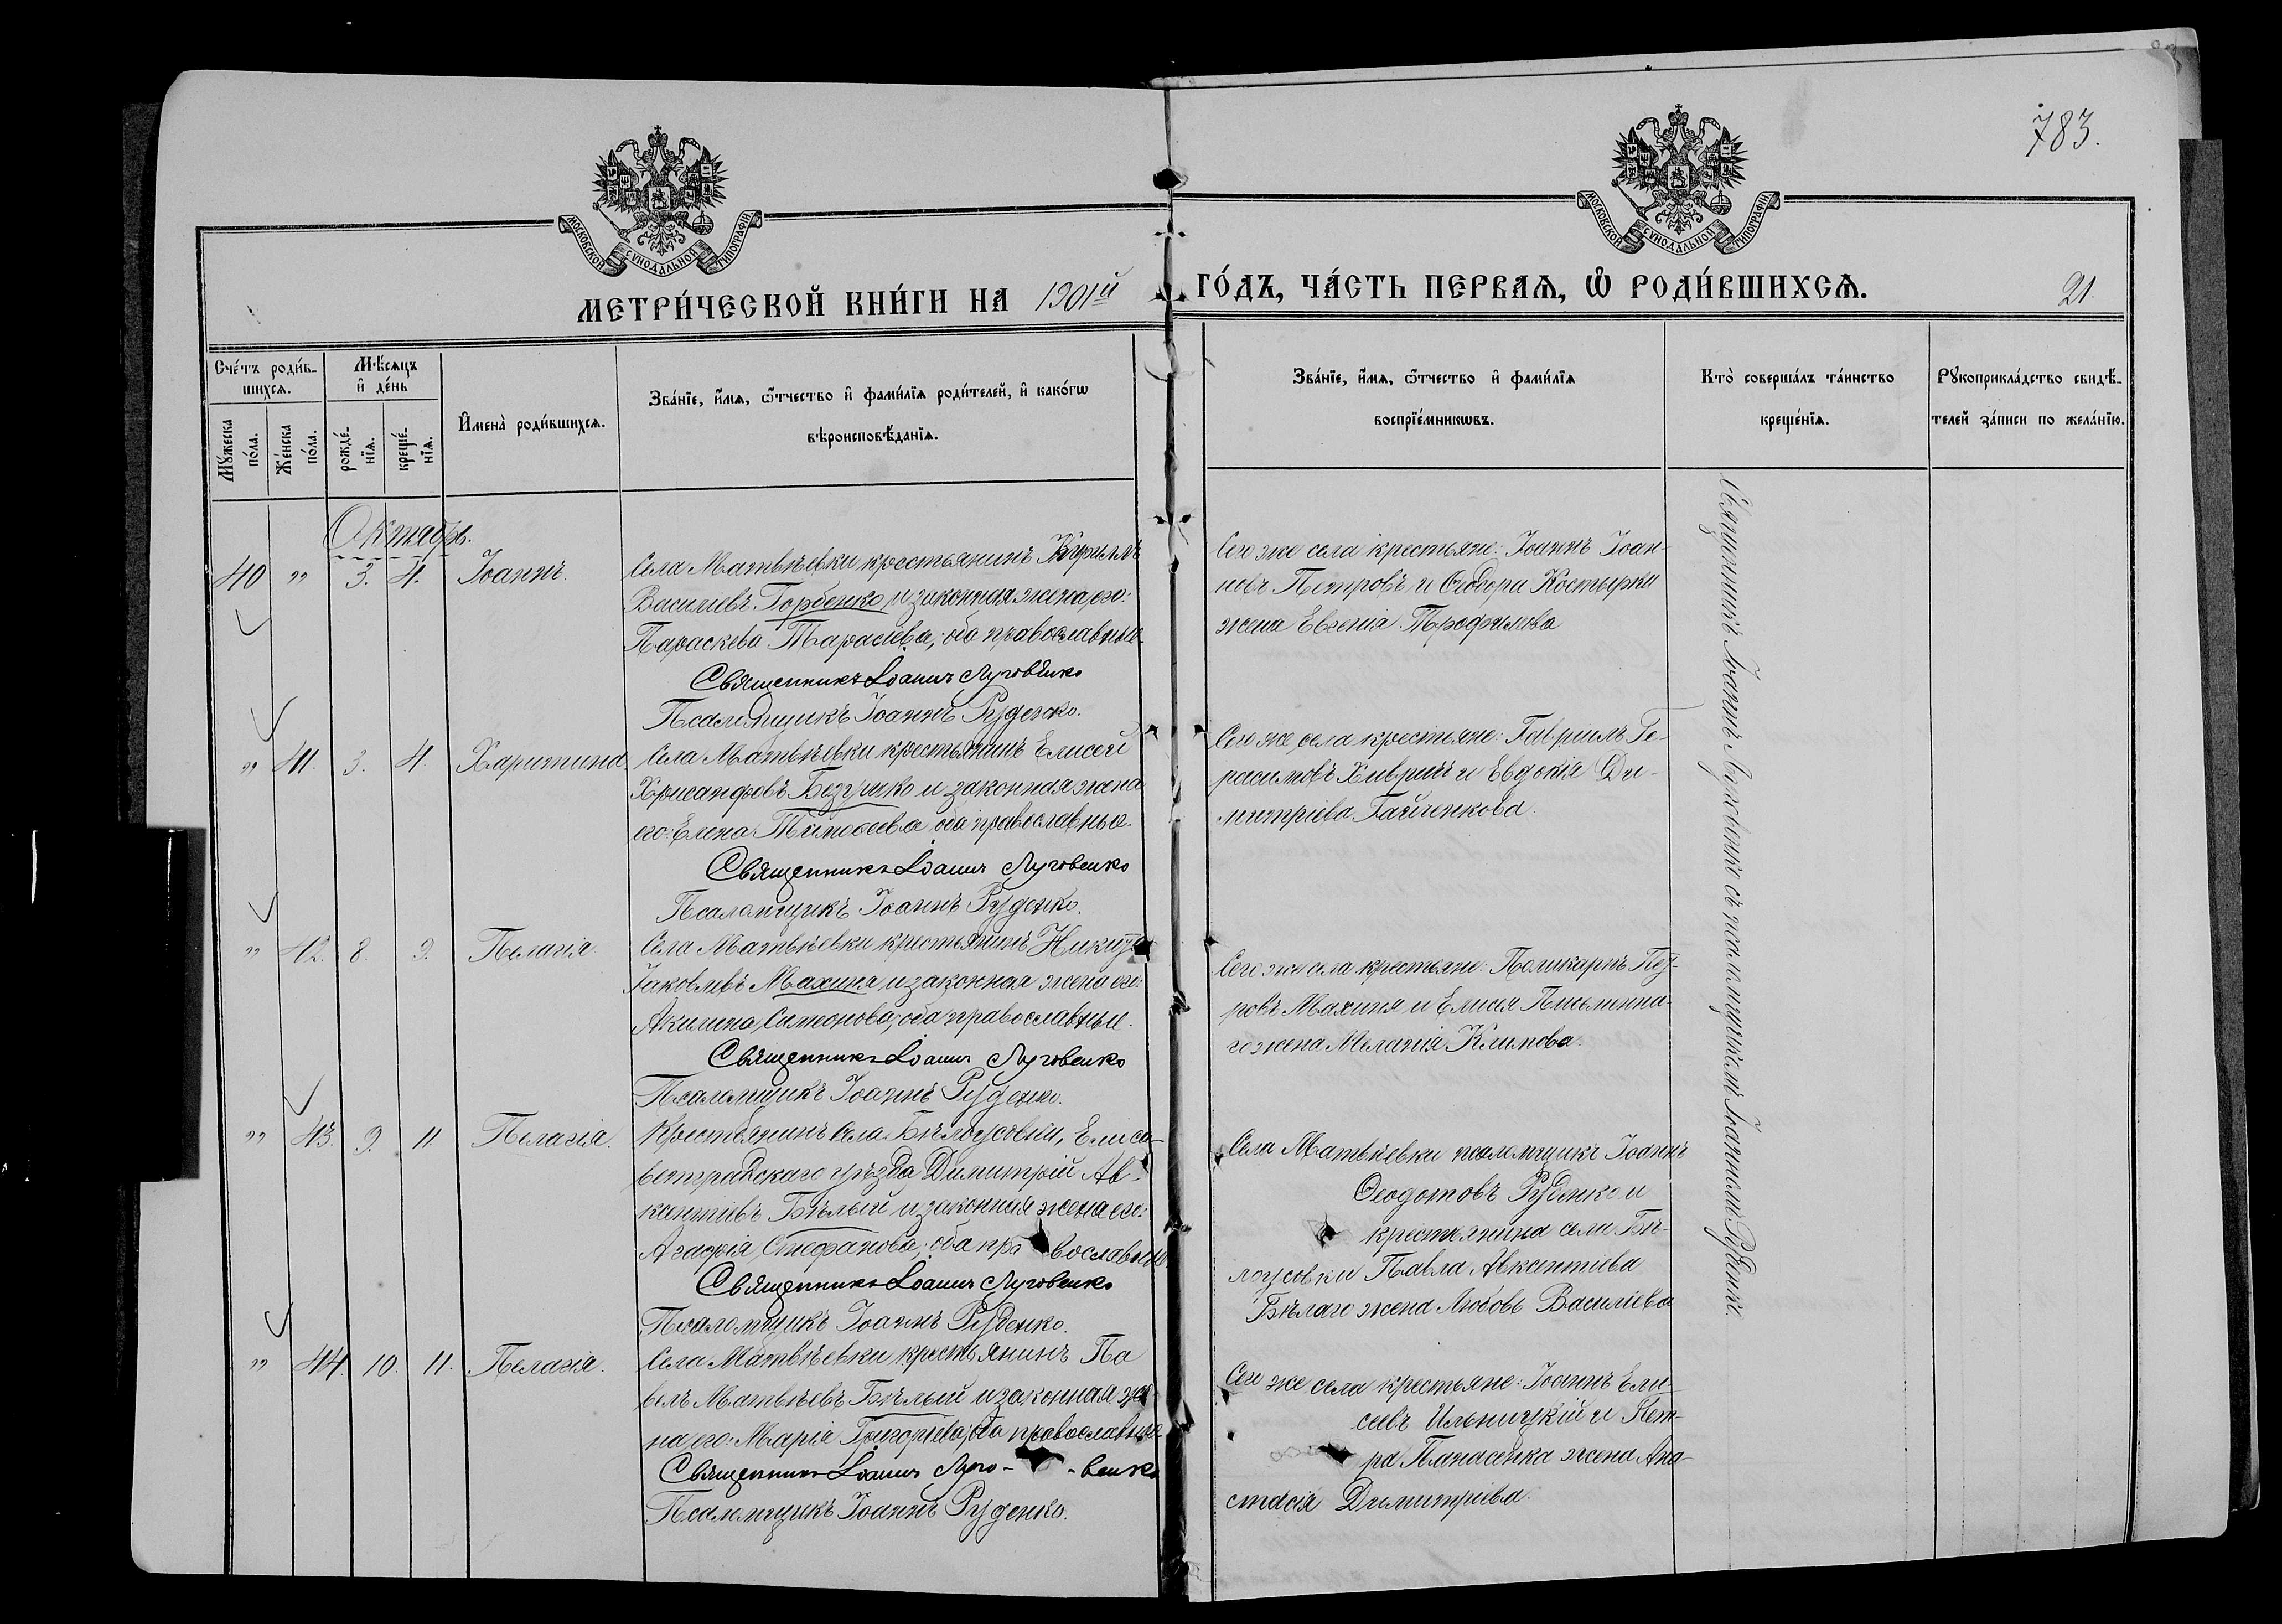 783.
МОСКОВСКОЙ СѴНОДАЛЬНОЙ ТИПОГРАФІИ
МОСКОВСКОЙ СѴНОДАЛЬНОЙ ТИПОГРАФІИ
МЕТРИ́ЧЕСКОЙ КНИ́ГИ НА 1901й ГО́ДЪ, ЧА́СТЬ ПЕРВАѦ, Ѡ҆ РОДИ́ВШИХСѦ.
21.
Сче́тъ роди́в-
шихсѧ.
Мѣ́сѧцъ
и҆ де́нь
Мꙋ́жеска
по́ла.
Же́нска
по́ла.
рожде́-
нїѧ.
креще́-
нїѧ.
И҆мена̀ роди́вшихсѧ.
Зва́нїе, и҆́мѧ, ѻ҆́тчество и҆ фами́лїѧ роди́телей, и҆ како́гѡ
вѣроисповѣ́данїѧ.
Зва́нїе, и҆́мѧ, ѻ҆́тчество и҆ фами́лїѧ
воспрїе́мникѡвъ.
Кто̀ соверша́лъ та́инство
креще́нїѧ.
Рꙋкоприкла́дство свидѣ́-
телей за́писи по жела́нїю.
Октябрь.
40 " 3. 4. Іоаннъ.
Села Матвѣевки крестьянинъ
Василіевъ Горбенко и законная жена его:
Параскева Тарасіева, оба православные.
Священникъ Іоаннъ Луговенко
Псаломщикъ Іоаннъ Руденко.
Сего же села крестьяне: Іоаннъ Іоан-
новъ Петровъ и Ѳеодора Костырки
жена Евгенія Трофимова
" 41. 3. 4. Харитина.
Села Матвѣевки крестьянинъ Елисей
Хрисанфовъ Безушко и законная жена
его: Елена Тимоѳеева оба православные.
Священникъ Іоаннъ Луговенко
Псаломщикъ Іоаннъ Руденко.
Сего же села крестьяне: Гавріилъ Ге-
расимовъ Хивричъ и Евдокія Ди-
митріева Гайченкова.
" 42. 8. 9. Пелагія.
Села Матвѣевки крестьянинъ Никита
Іаковлевъ Махиня и законная жена его:
Акилина Симеонова, оба православные.
Священникъ Іоаннъ Луговенко
Псаломщикъ Іоаннъ Руденко.
Сего же села крестьяне: Поликарпъ Пет-
ровъ Махиня и Елисея Письменна-
го жена Меланія Климова.
" 43. 9. 11 Пелагія.
Крестьянинъ села Бѣлоусовки, Елиса-
ветградскаго уѣзда Димитрій Ав-
ксентіевъ Бѣлый и законная жена его:
Агафія Стефанова; оба православные
Священникъ Іоаннъ Луговенко
Псаломщикъ Іоаннъ Руденко.
Села Матвѣевки псаломщикъ Іоаннъ
Ѳеодотовъ Руденко и
крестьянина села Бѣ-
лоусовки Павла Авксентіева
Бѣлаго жена Любовь Василіева
" 44. 10. 11. Пелагія.
Села Матвѣевки крестьянинъ Па
велъ Матвѣевъ Бѣлый и законная же
на его: Марія Григоріева, оба православные
Священникъ Іоаннъ Луго- -венко
Псаломщикъ Іоаннъ Руденко.
Сего же села крестьяне: Іоаннъ Ели-
сеевъ Ильницкій и Пет-
ра Панасенка жена Ана-
стасія Димитріева.
Священникъ Іоаннъ Луговенко съ псаломщикомъ Іоанномъ Руденко.